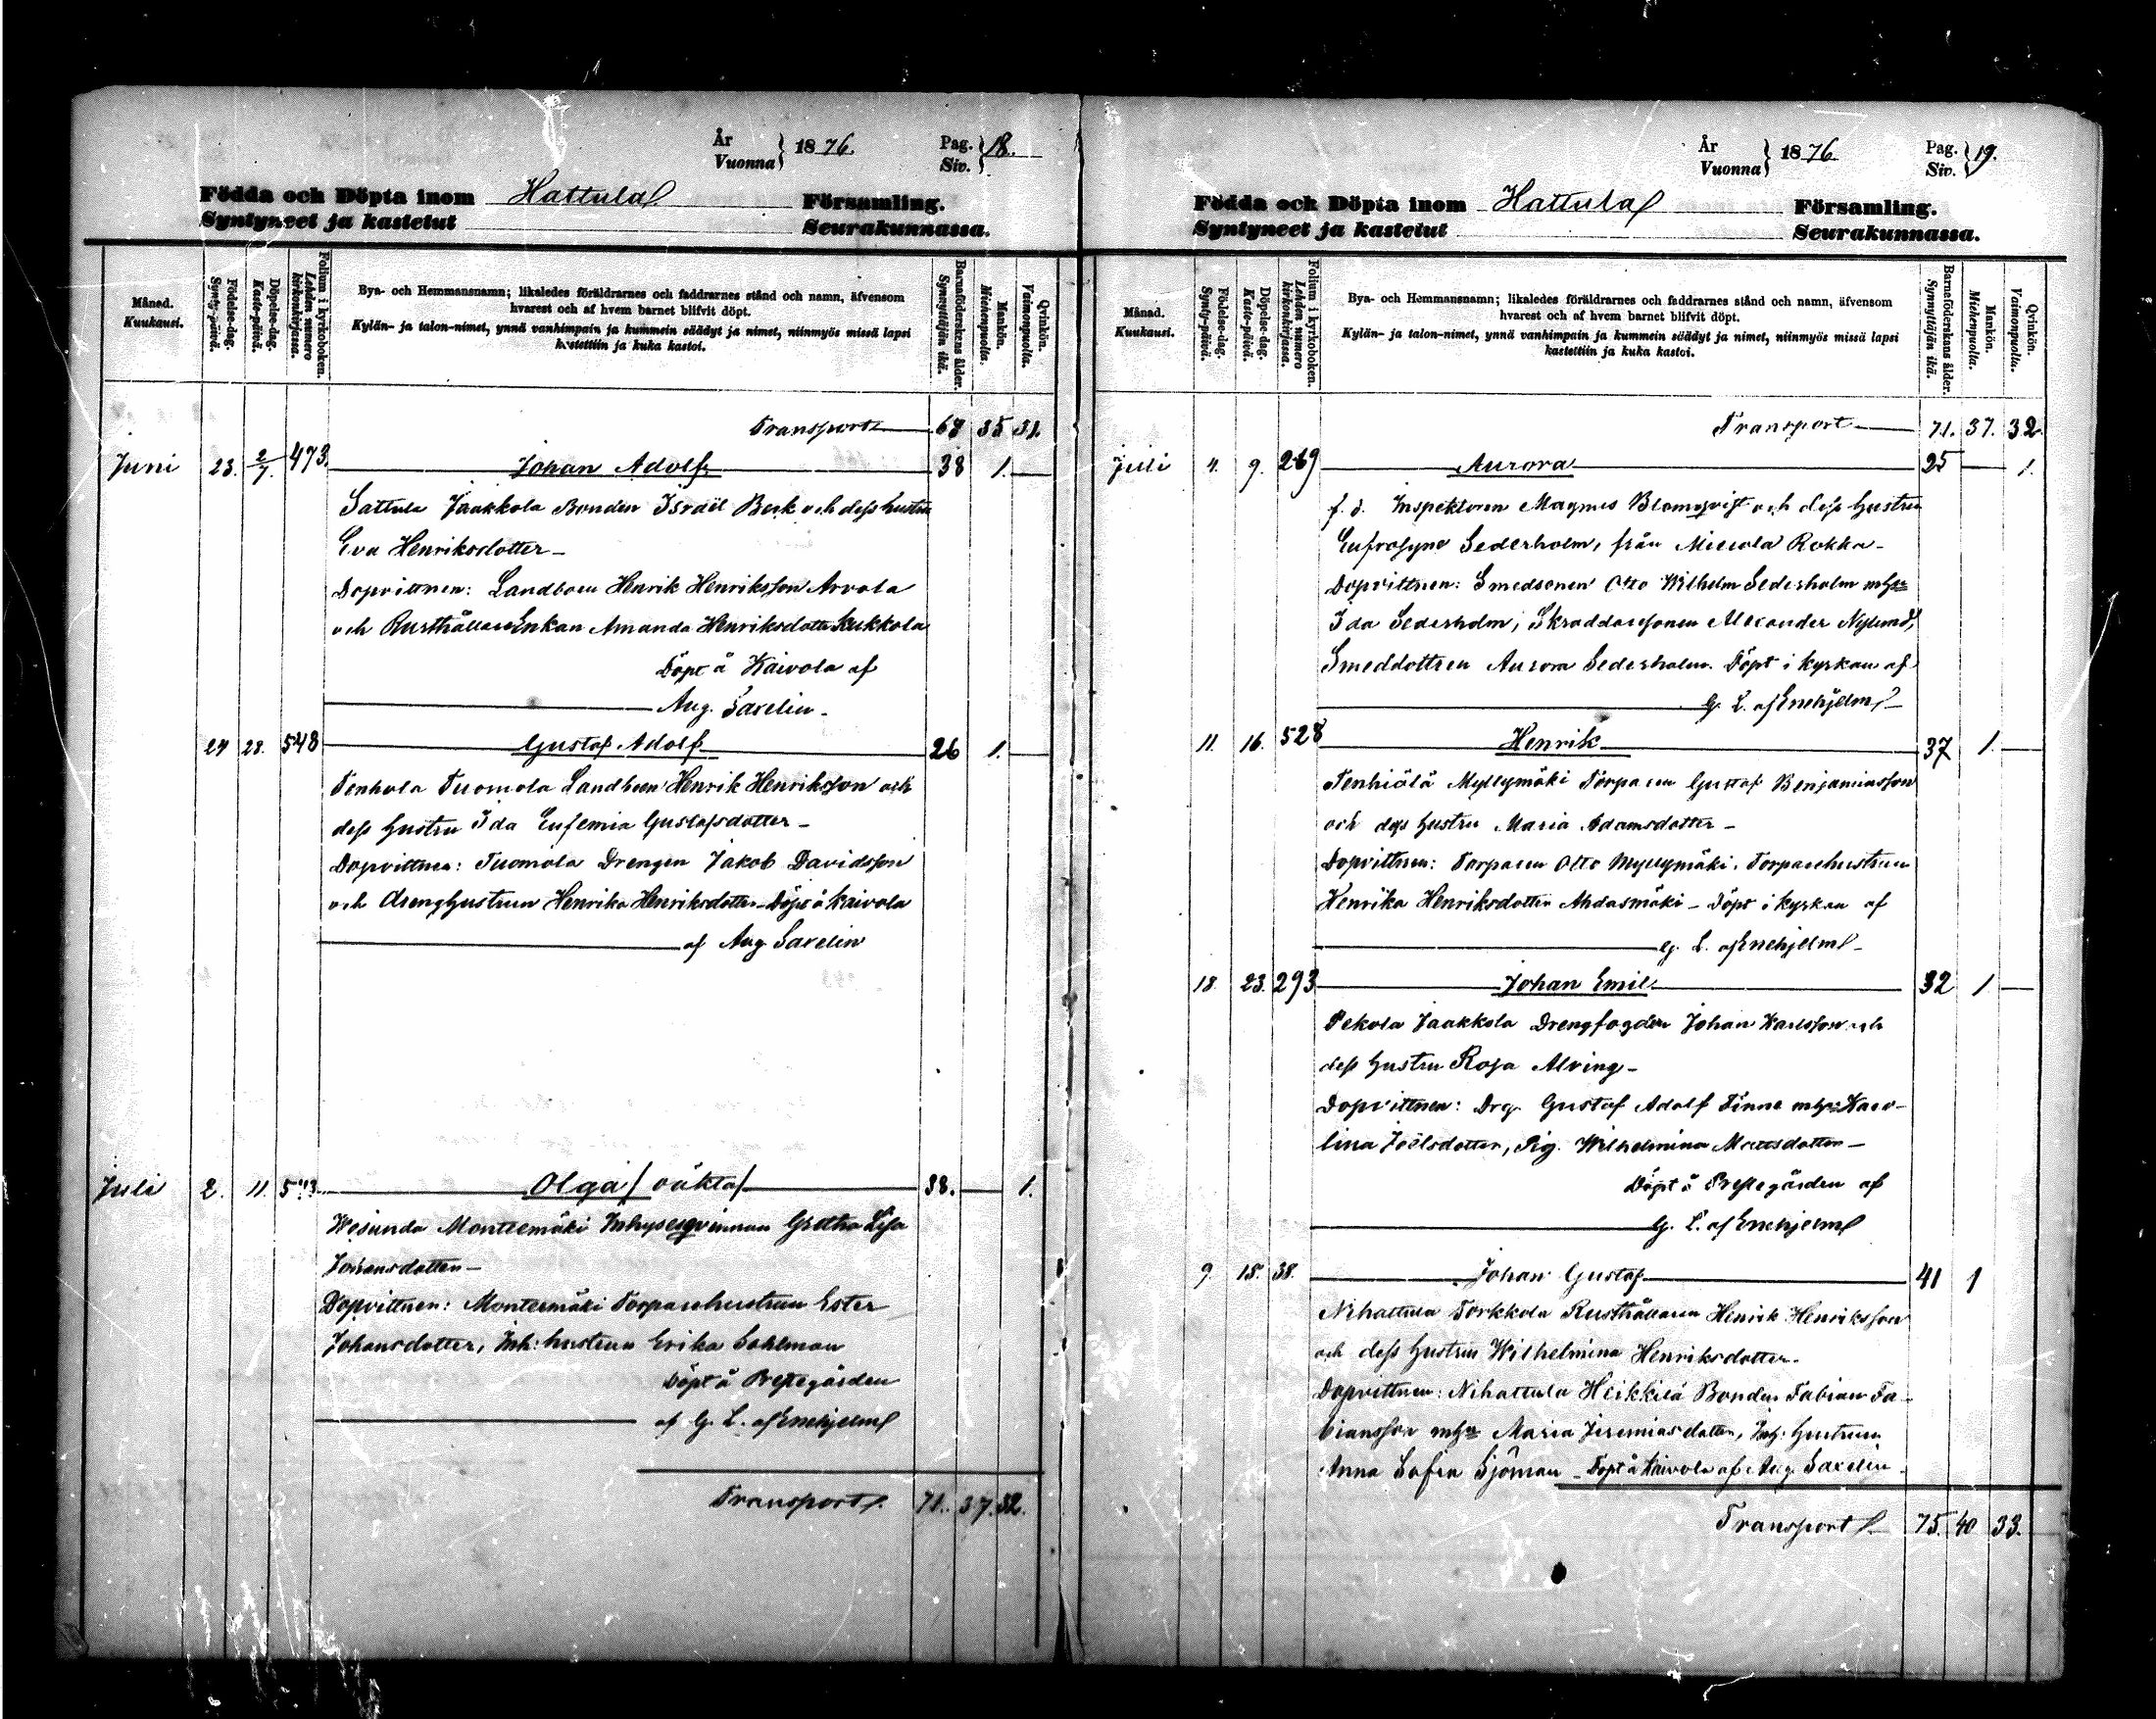 År
Vuonna } 1876. Pag.
Siv. } 18.
Födda och Döpta inom Hattula Församling.
Syntyneet ja kastetut Seurakunnassa.
Månad.
Kuukausi.
Födelse-dag.
Synty-päivä.
Döpelse-dag.
Kaste-päivä.
Folium i kyrkoboken.
Lehden numero
kirkonkirjassa.
Bya- och Hemmansnamn; likaledes föräldrarnes och faddrarnes stånd och namn, äfvensom
hvarest och af hvem barnet blifvit döpt.
Kylän- ja talon-nimet, ynnä vanhimpain ja kummein säädyt ja nimet, niinmyös missä lapsi
kastettiin ja kuka kastoi.
Barnaföderskans ålder.
Synnyttäjän ikä.
Mankön.
Miehenpuolia.
Qvinkön.
Vaimonpuolia.
Transport 35 31.
Juni 23. 2/7. 473. Johan Adolf 38 1.
Sattula Jaakkola Bonden Israël Beck och dess hustru
Eva Henriksdotter
Dopvittnen: Landboen Henrik Henriksson Arvola
och Rusthållare Enkan Amanda Henriksdotter Kukkola
Döpt å Kaivola af
Aug. Saxelin
24 28. 548 Gustaf Adolf 26 1.
Tenhola Tuomola Landboen Henrik Henriksson och
dess hustru Ida Eufemia Gustafsdotter
Dopvittnen: Tuomola Drengen Jakob Davidsson
och drenghustrun Henrika Henriksdotter Döpt å Kaivola
af Aug Saxelin
Juli 2. 11. 543 Olga / oäkta / 38. 1.
Wesunda Monteenmäki Inhysesqvinnan Gretha Lisa
Johansdotter
Dopvittnen: Monteenmäki Torparehustrun Ester
Johansdotter, Inh: hustrun Erika Sahlman
Döpt å Prestegården
af G. L. af Enehjelm
Transport 71. 37. 32.
År
Vuonna } 1876 Pag.
Siv. } 19.
Födda och Döpta inom Hattula Församling.
Syntyneet ja kastetut Seurakunnassa.
Månad.
Kuukausi.
Födelse-dag.
Synty-päivä.
Döpelse-dag.
Kaste-päivä.
Folium i kyrkoboken.
Lehden numero
kirkonkirjassa.
Bya- och Hemmansnamn; likaledes föräldrarnes och faddrarnes stånd och namn, äfvensom
hvarest och af hvem barnet blifvit döpt.
Kylän- ja talon-nimet, ynnä vanhimpain ja kummein säädyt ja nimet, niinmyös missä lapsi
kastettiin ja kuka kastoi.
Barnaföderskans ålder.
Synnyttäjän ikä.
Mankön.
Miehenpuolia.
Qvinkön.
Vaimonpuolia.
Transport 71. 37. 32
Juli 4. 9. 269 Aurora 25 1.
f. d. Inspektoren Magnus Blomqvist och dess hustru
Eufrosyne Sederholm, från Mierola Rokka
Dopvittnen: Smedsonen Otto Wilhelm Sederholm
Ida Sederholm, Skräddaresonen Alexander Nylund,
Smeddottren Aurora Sederholm. Döpt i kyrkan af
G. L. af Enehjelm
11. 16. 528 Henrik 37 1.
Tenhiälä Myllymäki Torparen Gustaf Benjaminsson
och dess hustru Maria Adamsdotter
Dopvittnen: Torparen Otto Myllymäki. Torparehustrun
Henrika Henriksdotter Ahdasmäki Döpt i kyrkan af
G. L. af Enehjelm
18. 23. 293 Johan Emil 32 1
Pekola Jaakkola Drengfogden Johan Karlsson och
dess hustru Rosa Alving
Dopvittnen: Drg. Gustaf Adolf Finne Karo-
lina Joëlsdotter, Pig. Wilhelmina Mattsdotter
Döpt å Prestegården af
G. L. af Enehjelm
9. 15. 38. Johan Gustaf 41 1
Nihattula Torkkola Rusthållaren Henrik Henriksson
och dess hustru Wilhelmina Henriksdotter.
Dopvittnen: Nihattula Heikkilä Bonden Fabian Fa-
biansson Maria Jeremiasdotter, Inh: hustrun
Anna Sofia Sjöman Döpt å Kaivola af Aug. Saxelin
Transport 75. 40 33.